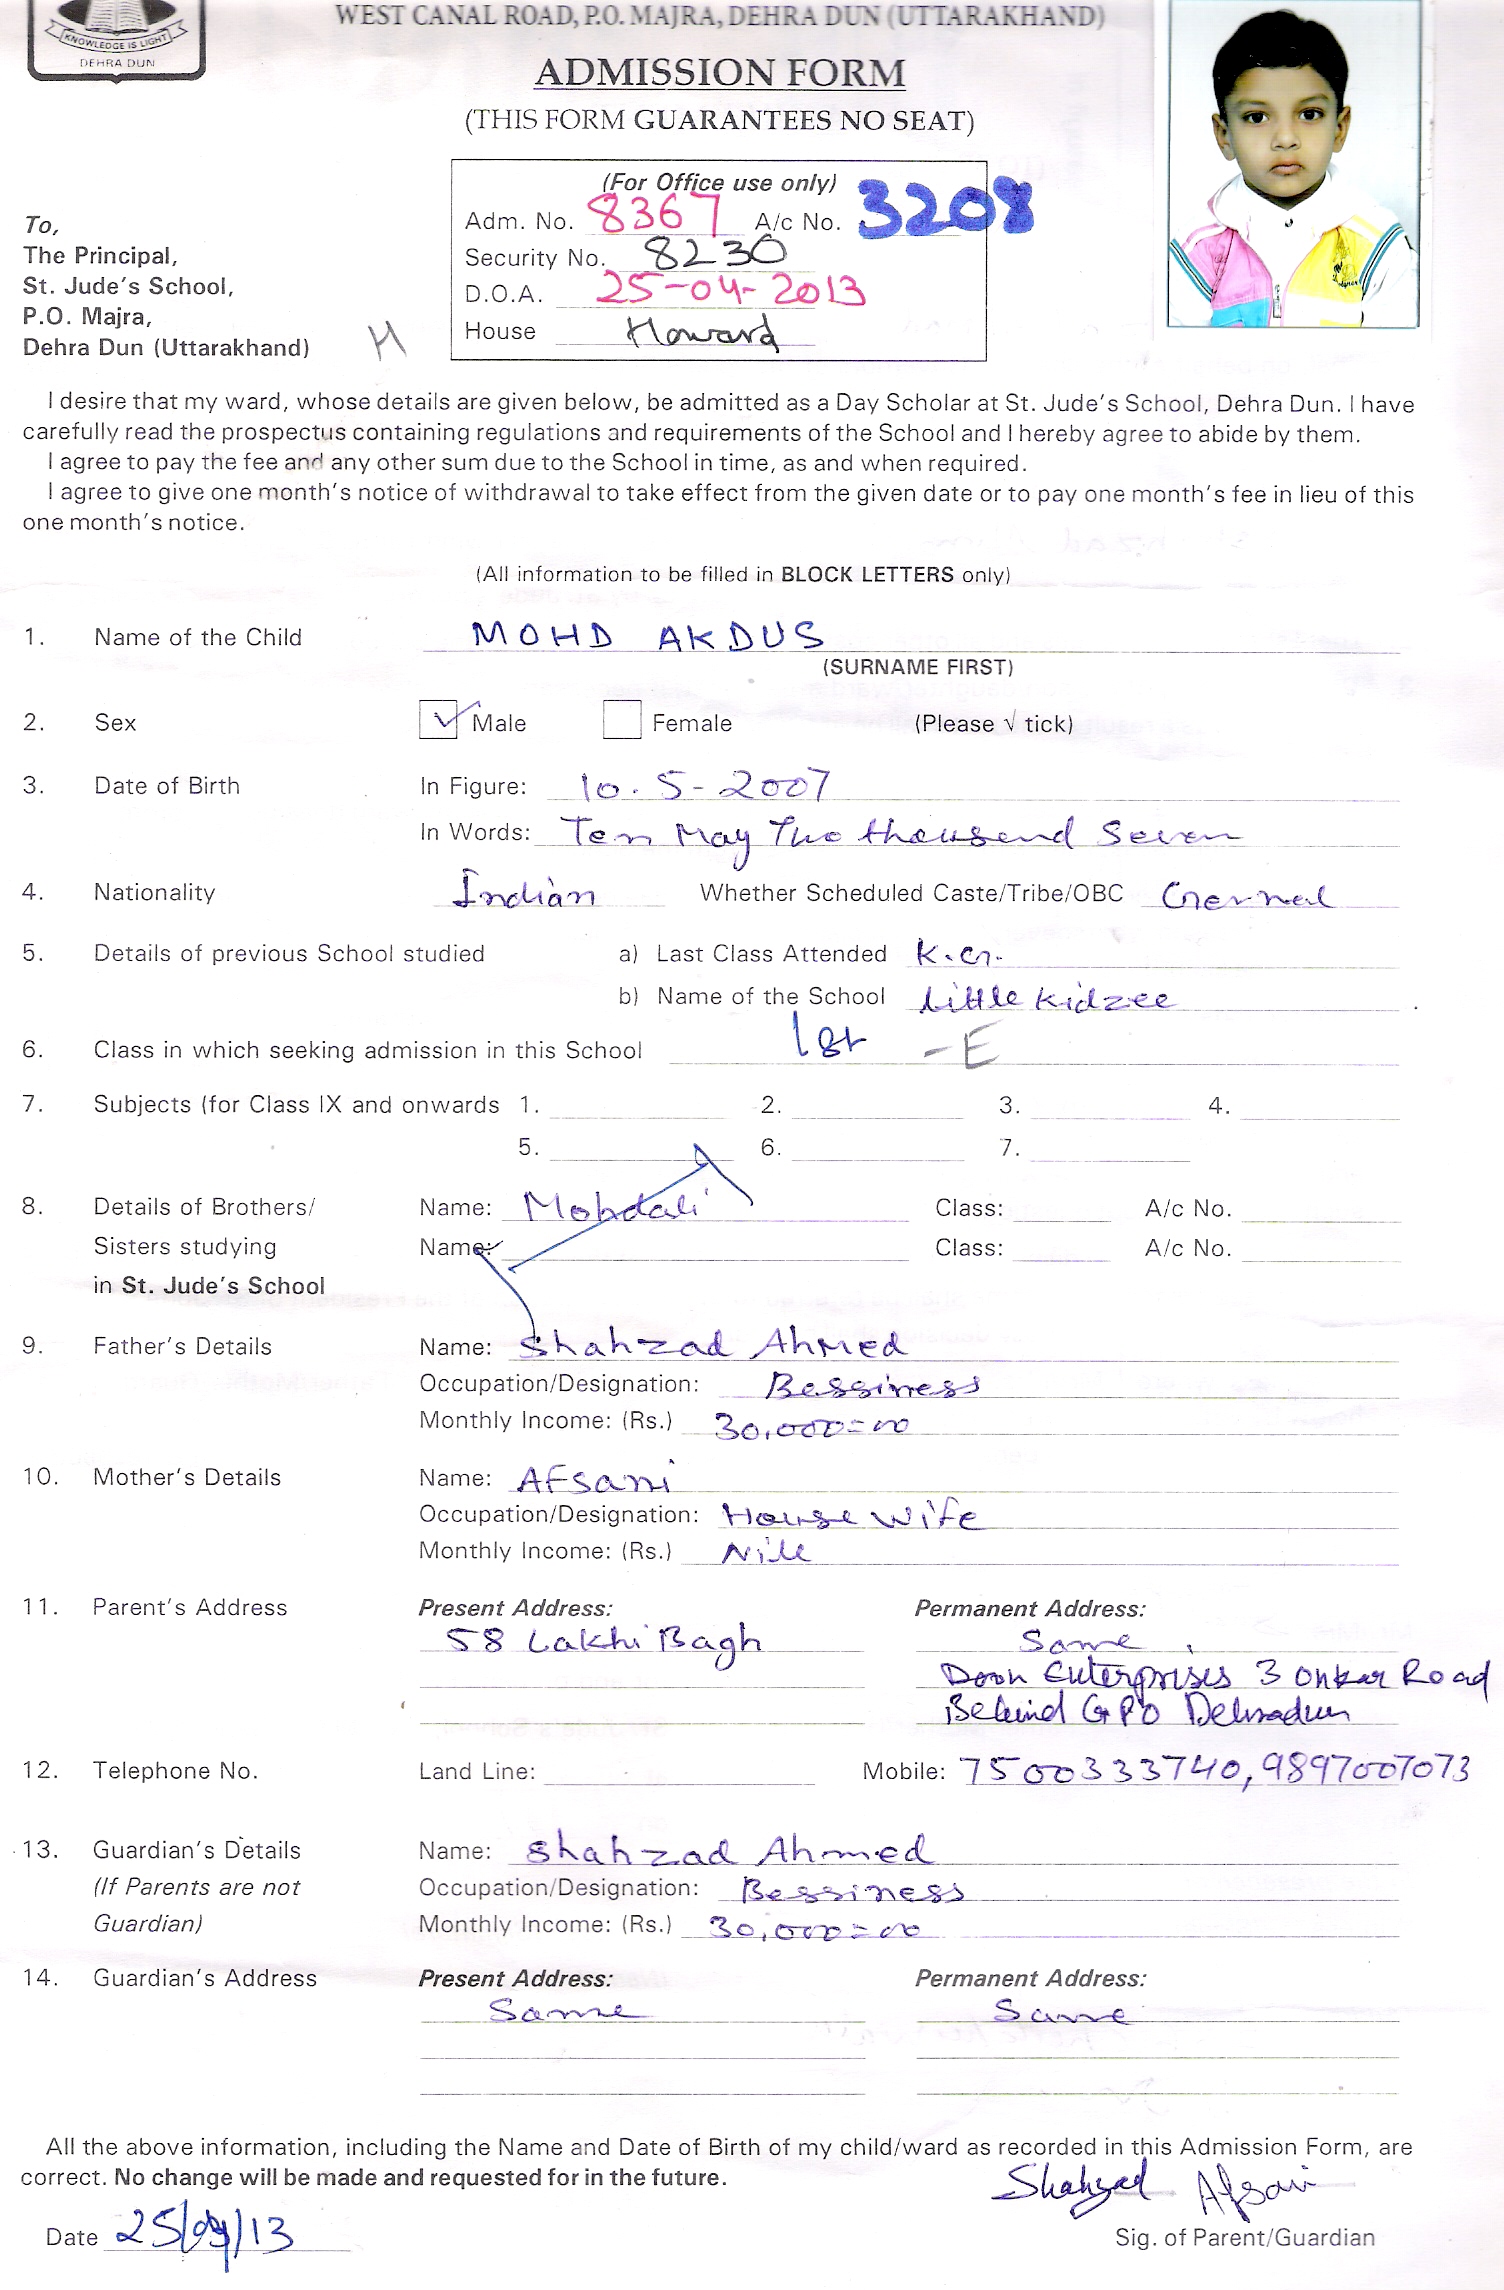 KNOWLEDGE IS LIGHT
DEHRA DUN
WEST CANAL ROAD, P.O. MAJRA, DEHRA DUN (UTTARAKHAND)
ADMISSION FORM
(THIS FORM GUARANTEES NO SEAT)
(For Office use only)
Adm. No. 8367 A/c No. 3208
Security No. 8230
D.O.A. 25-04-2013
House Howard
To,
The Principal,
St. Jude's School,
P.O. Majra,
Dehra Dun (Uttarakhand) H
I desire that my ward, whose details are given below, be admitted as a Day Scholar at St. Jude's School, Dehra Dun. I have
carefully read the prospectus containing regulations and requirements of the School and I hereby agree to abide by them.
I agree to pay the fee and any other sum due to the School in time, as and when required.
I agree to give one month's notice of withdrawal to take effect from the given date or to pay one month's fee in lieu of this
one month's notice.
(All information to be filled in BLOCK LETTERS only)
1. Name of the Child MOHD AKDUS
(SURNAME FIRST)
2. Sex ✓ Male Female (Please √ tick)
3. Date of Birth In Figure: 10.5-2007
In Words: Ten May Two thousend Seven
4. Nationality Indian Whether Scheduled Caste/Tribe/OBC Gernel
5. Details of previous School studied a) Last Class Attended K.G.
b) Name of the School Little Kidzee
6. Class in which seeking admission in this School 1st -E
7. Subjects (for Class IX and onwards 1. 2. 3. 4.
5. 6. 7.
8. Details of Brothers/ Name: Mohdali Class: A/c No.
Sisters studying Name: Class: A/c No.
in St. Jude's School
9. Father's Details Name: Shahzad Ahmed
Occupation/Designation: Bessiness
Monthly Income: (Rs.) 30,000=00
10. Mother's Details Name: Afsani
Occupation/Designation: House Wife
Monthly Income: (Rs.) Nill
11. Parent's Address Present Address: Permanent Address:
58 Lakhi Bagh Same
Doon Enterprises 3 Onkar Road
Behind GPO Dehradun
12. Telephone No. Land Line: Mobile: 7500333740, 9897007073
13. Guardian's Details Name: Shahzad Ahmed
(If Parents are not Occupation/Designation: Bessiness
Guardian) Monthly Income: (Rs.) 30,000=00
14. Guardian's Address Present Address: Permanent Address:
Same Same
All the above information, including the Name and Date of Birth of my child/ward as recorded in this Admission Form, are
correct. No change will be made and requested for in the future.
Shahzad Afsani
Date 25/04/13 Sig. of Parent/Guardian